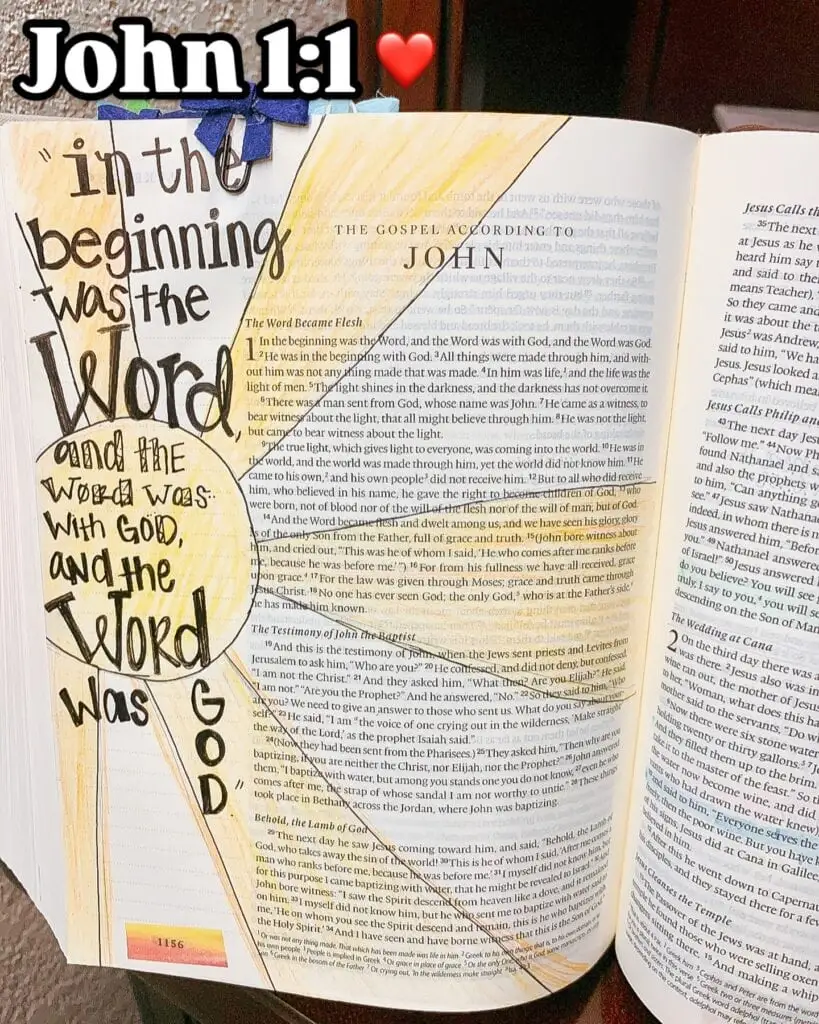 John 1:1 ❤️
"in the
beginning
was the
Word,
and the
Word was
with GOD,
and the
WORD
was
GOD"
1156
THE GOSPEL ACCORDING TO
JOHN
The Word Became Flesh
1 In the beginning was the Word, and the Word was with God, and the Word was God.
2He was in the beginning with God. 3All things were made through him, and with-
out him was not any thing made that was made. 4In him was life,1 and the life was the
light of men. 5The light shines in the darkness, and the darkness has not overcome it.
6There was a man sent from God, whose name was John. 7He came as a witness, to
bear witness about the light, that all might believe through him. 8He was not the light,
but came to bear witness about the light.
9The true light, which gives light to everyone, was coming into the world. 10He was in
the world, and the world was made through him, yet the world did not know him. 11He
came to his own,2 and his own people3 did not receive him. 12But to all who did receive
him, who believed in his name, he gave the right to become children of God, 13who
were born, not of blood nor of the will of the flesh nor of the will of man, but of God.
14And the Word became flesh and dwelt among us, and we have seen his glory, glory
as of the only Son from the Father, full of grace and truth. 15(John bore witness about
him, and cried out, "This was he of whom I said, 'He who comes after me ranks before
me, because he was before me.'") 16For from his fullness we have all received, grace
upon grace.4 17For the law was given through Moses; grace and truth came through
Jesus Christ. 18No one has ever seen God; the only God,5 who is at the Father's side,6
he has made him known.
The Testimony of John the Baptist
19And this is the testimony of John, when the Jews sent priests and Levites from
Jerusalem to ask him, "Who are you?" 20He confessed, and did not deny, but confessed,
"I am not the Christ." 21And they asked him, "What then? Are you Elijah?" He said,
"I am not." "Are you the Prophet?" And he answered, "No." 22So they said to him, "Who
are you? We need to give an answer to those who sent us. What do you say about your-
self?" 23He said, "I am the voice of one crying out in the wilderness, 'Make straight
the way of the Lord,' as the prophet Isaiah said."
24(Now they had been sent from the Pharisees.) 25They asked him, "Then why are you
baptizing, if you are neither the Christ, nor Elijah, nor the Prophet?" 26John answered
them, "I baptize with water, but among you stands one you do not know, 27even he who
comes after me, the strap of whose sandal I am not worthy to untie." 28These things
took place in Bethany across the Jordan, where John was baptizing.
Behold, the Lamb of God
29The next day he saw Jesus coming toward him, and said, "Behold, the Lamb of
God, who takes away the sin of the world! 30This is he of whom I said, 'After me comes a
man who ranks before me, because he was before me.' 31I myself did not know him, but
for this purpose I came baptizing with water, that he might be revealed to Israel." 32And
John bore witness: "I saw the Spirit descend from heaven like a dove, and it remained
on him. 33I myself did not know him, but he who sent me to baptize with water said to
me, 'He on whom you see the Spirit descend and remain, this is he who baptizes with
the Holy Spirit.' 34And I have seen and have borne witness that this is the Son of God."
Jesus Calls th
35The next
at Jesus as he
heard him say
and said to the
means Teacher),
So they came and
it was about the t
Jesus2 was Andrew,
said to him, "We ha
Jesus. Jesus looked a
Cephas" (which mea
Jesus Calls Philip an
43The next day Jes
"Follow me." 44Now Ph
found Nathanael and sa
and also the prophets w
to him, "Can anything g
see." 47Jesus saw Nathana
indeed, in whom there is n
Jesus answered him, "Befor
you." 49Nathanael answered
of Israel!" 50Jesus answered h
do you believe? You will see
truly, I say to you, you will se
descending on the Son of Man
The Wedding at Cana
2 On the third day there was a
was there. 2Jesus also was in
wine ran out, the mother of Jesus
to her, "Woman, what does this ha
mother said to the servants, "Do w
6Now there were six stone water
holding twenty or thirty gallons. 7J
And they filled them up to the brim.
take it to the master of the feast." So t
the water now become wine, and did
who had drawn the water knew)
and said to him, "Everyone serves the
freely, then the poor wine. But you have k
of his signs, Jesus did at Cana in Galilee,
believed in him.
After this he went down to Capernau
and his disciples, and they stayed there for a few
Jesus Cleanses the Temple
The Passover of the Jews was at hand, a
he found those who were selling oxen
sitting there. 15And making a whip